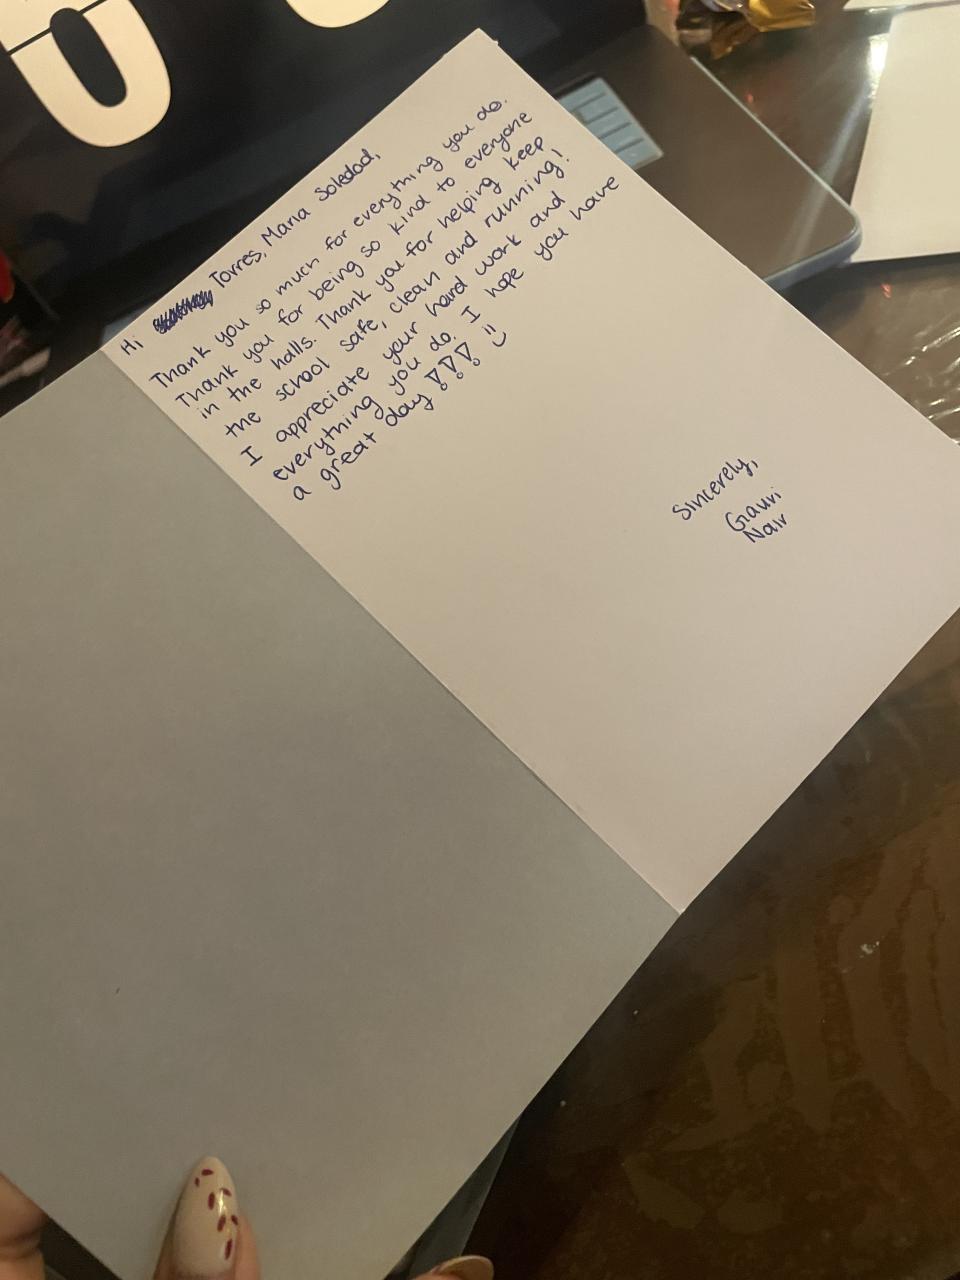 Hi Torres, Maria Soledad,
Thank you so much for everything you do.
Thank you for being so kind to everyone
in the halls. Thank you for helping keep
the school safe, clean and running!
I appreciate your hard work and
everything you do. I hope you have
a great day!!! :)
Sincerely,
Gauri
Nair